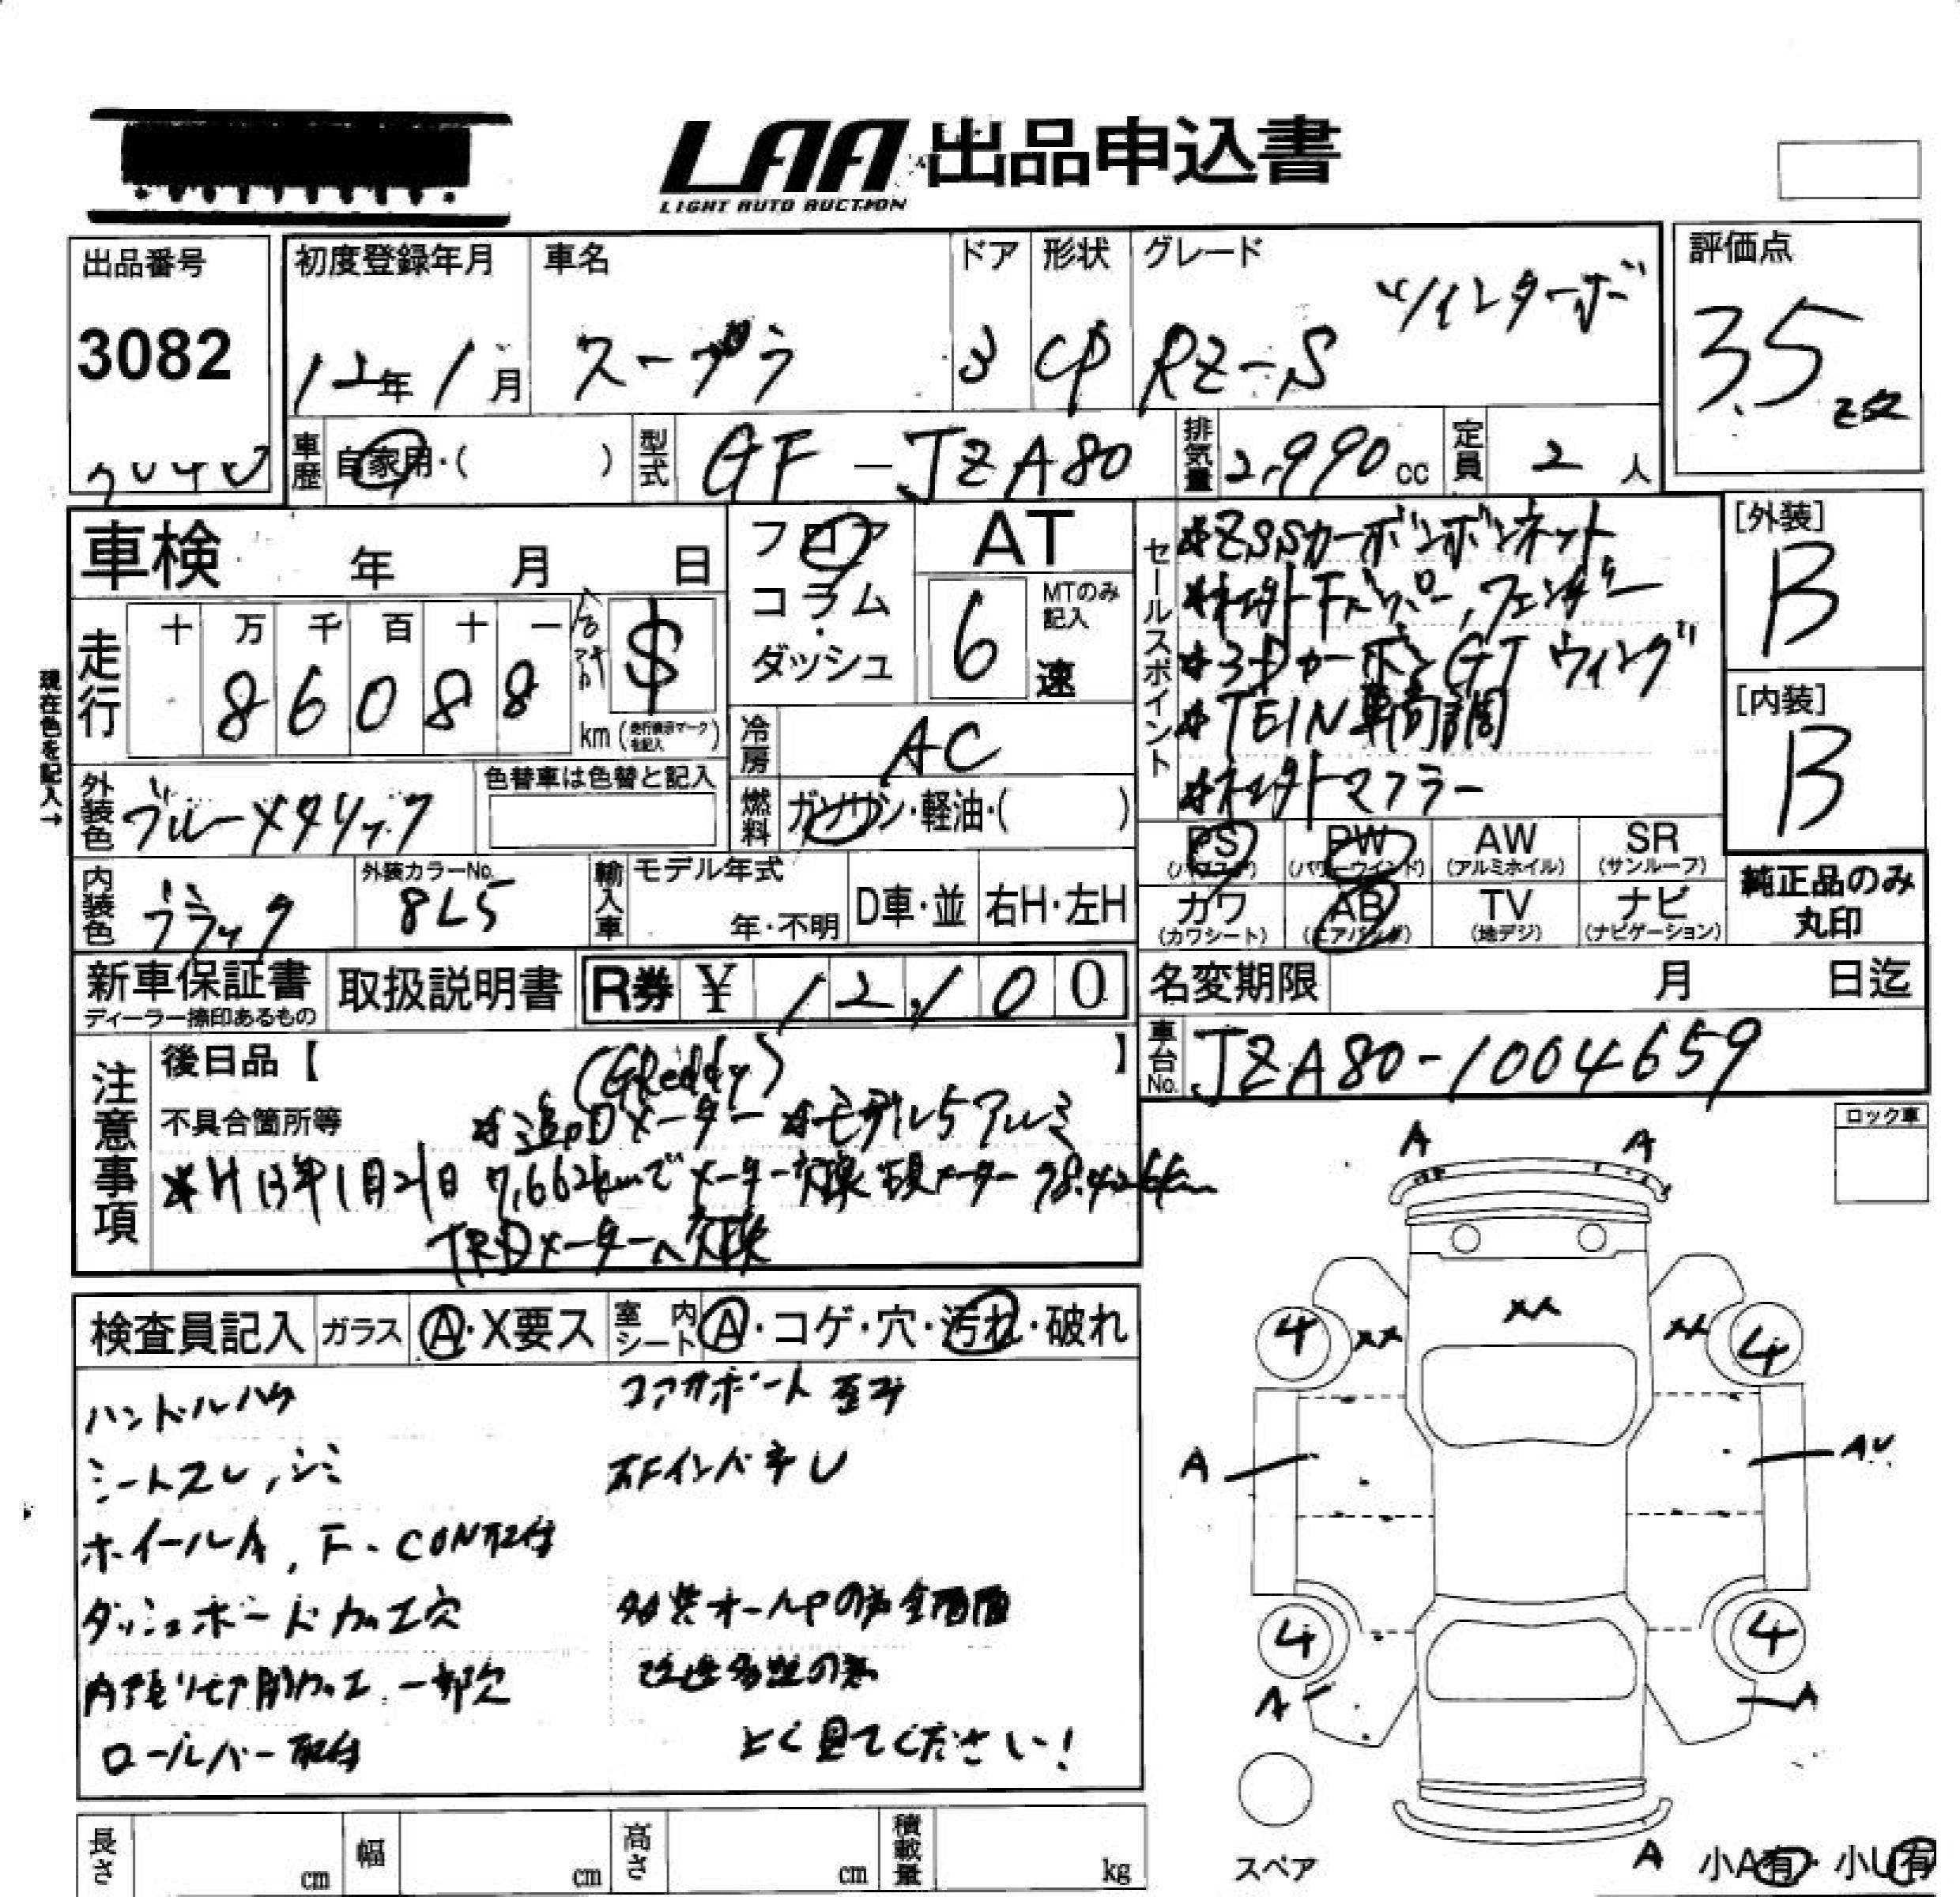 LAA 出品申込書
LIGHT AUTO AUCTION
出品番号
3082
初度登録年月
12年1月
車名
スープラ
ドア
3
形状
CP
グレード
RZ-S ツインターボ
評価点
3.5
車歴
自家用・( )
型式
GF-JZA80
排気量
2,990cc
定員
2人
車検 年 月 日
走行
現在色を記入→
十 万 千 百 十 一
86088
$
km(走行表示マークを記入)
フロア
コラム
・
ダッシュ
AT
6
MTのみ記入
速
冷房
AC
燃料
ガソリン・軽油・( )
セールスポイント
*ZSSカーボンボンネット
*社外Fバンパー,フェンダー
*3DカーボンGTウィング
*TEIN車高調
*社外マフラー
[外装]
B
[内装]
B
外装色
ブルーメタリック
色替車は色替と記入
内装色
ブラック
外装カラーNo.
8L5
輸入車
モデル年式
年・不明
D車・並
右H・左H
PS
(パワステ)
PW
(パワーウインド)
AW
(アルミホイル)
SR
(サンルーフ)
カワ
(カワシート)
AB
(エアバッグ)
TV
(地デジ)
ナビ
(ナビゲーション)
純正品のみ
丸印
新車保証書
ディーラー捺印あるもの
取扱説明書
R券 ¥ 12,100
名変期限 月 日迄
車台No.
JZA80-1004659
注意事項
後日品【 】
(GReddy)
不具合箇所等
*追加メーター *モデル5アルミ
*H13年1月21日 7,662kmでメーター交換 現メーター 78.426km
TRDメーターへ交換
ロック車
検査員記入
ガラス
A・X要ス
室内シート
A・コゲ・穴・汚れ・破れ
ハンドルハゲ
シートスレ,シミ
ホイールA, F-CON取付
ダッシュボード加工穴
内張リヤ削加工 一部欠
ロールバー取付
コアサポート歪み
右Fインパネ
改造多数の為
よく見てください!
A A
XX
4 XX XX 4
A AU
4 4
A A
スペア
A 小A有・小U有
長さ cm
幅 cm
高さ cm
積載量 kg